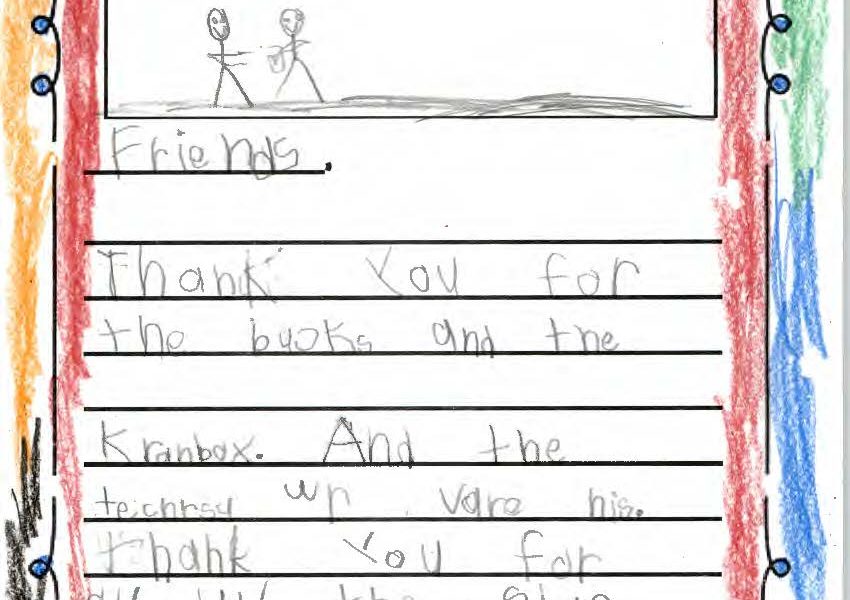 Friends.
Thank You for
the buoks and the
Kranbox. And the
techrsy wr vare nis.
thank You for
the